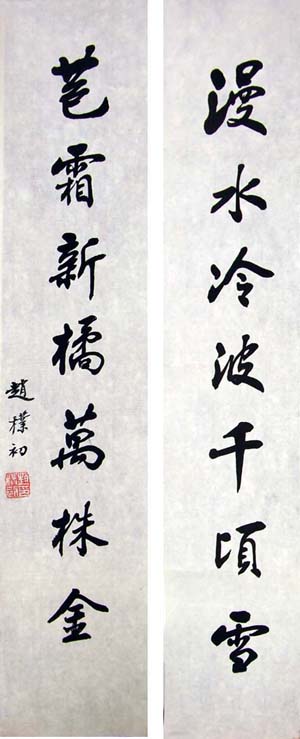 漫水冷波千頃雪
苞霜新橘萬株金
趙樸初